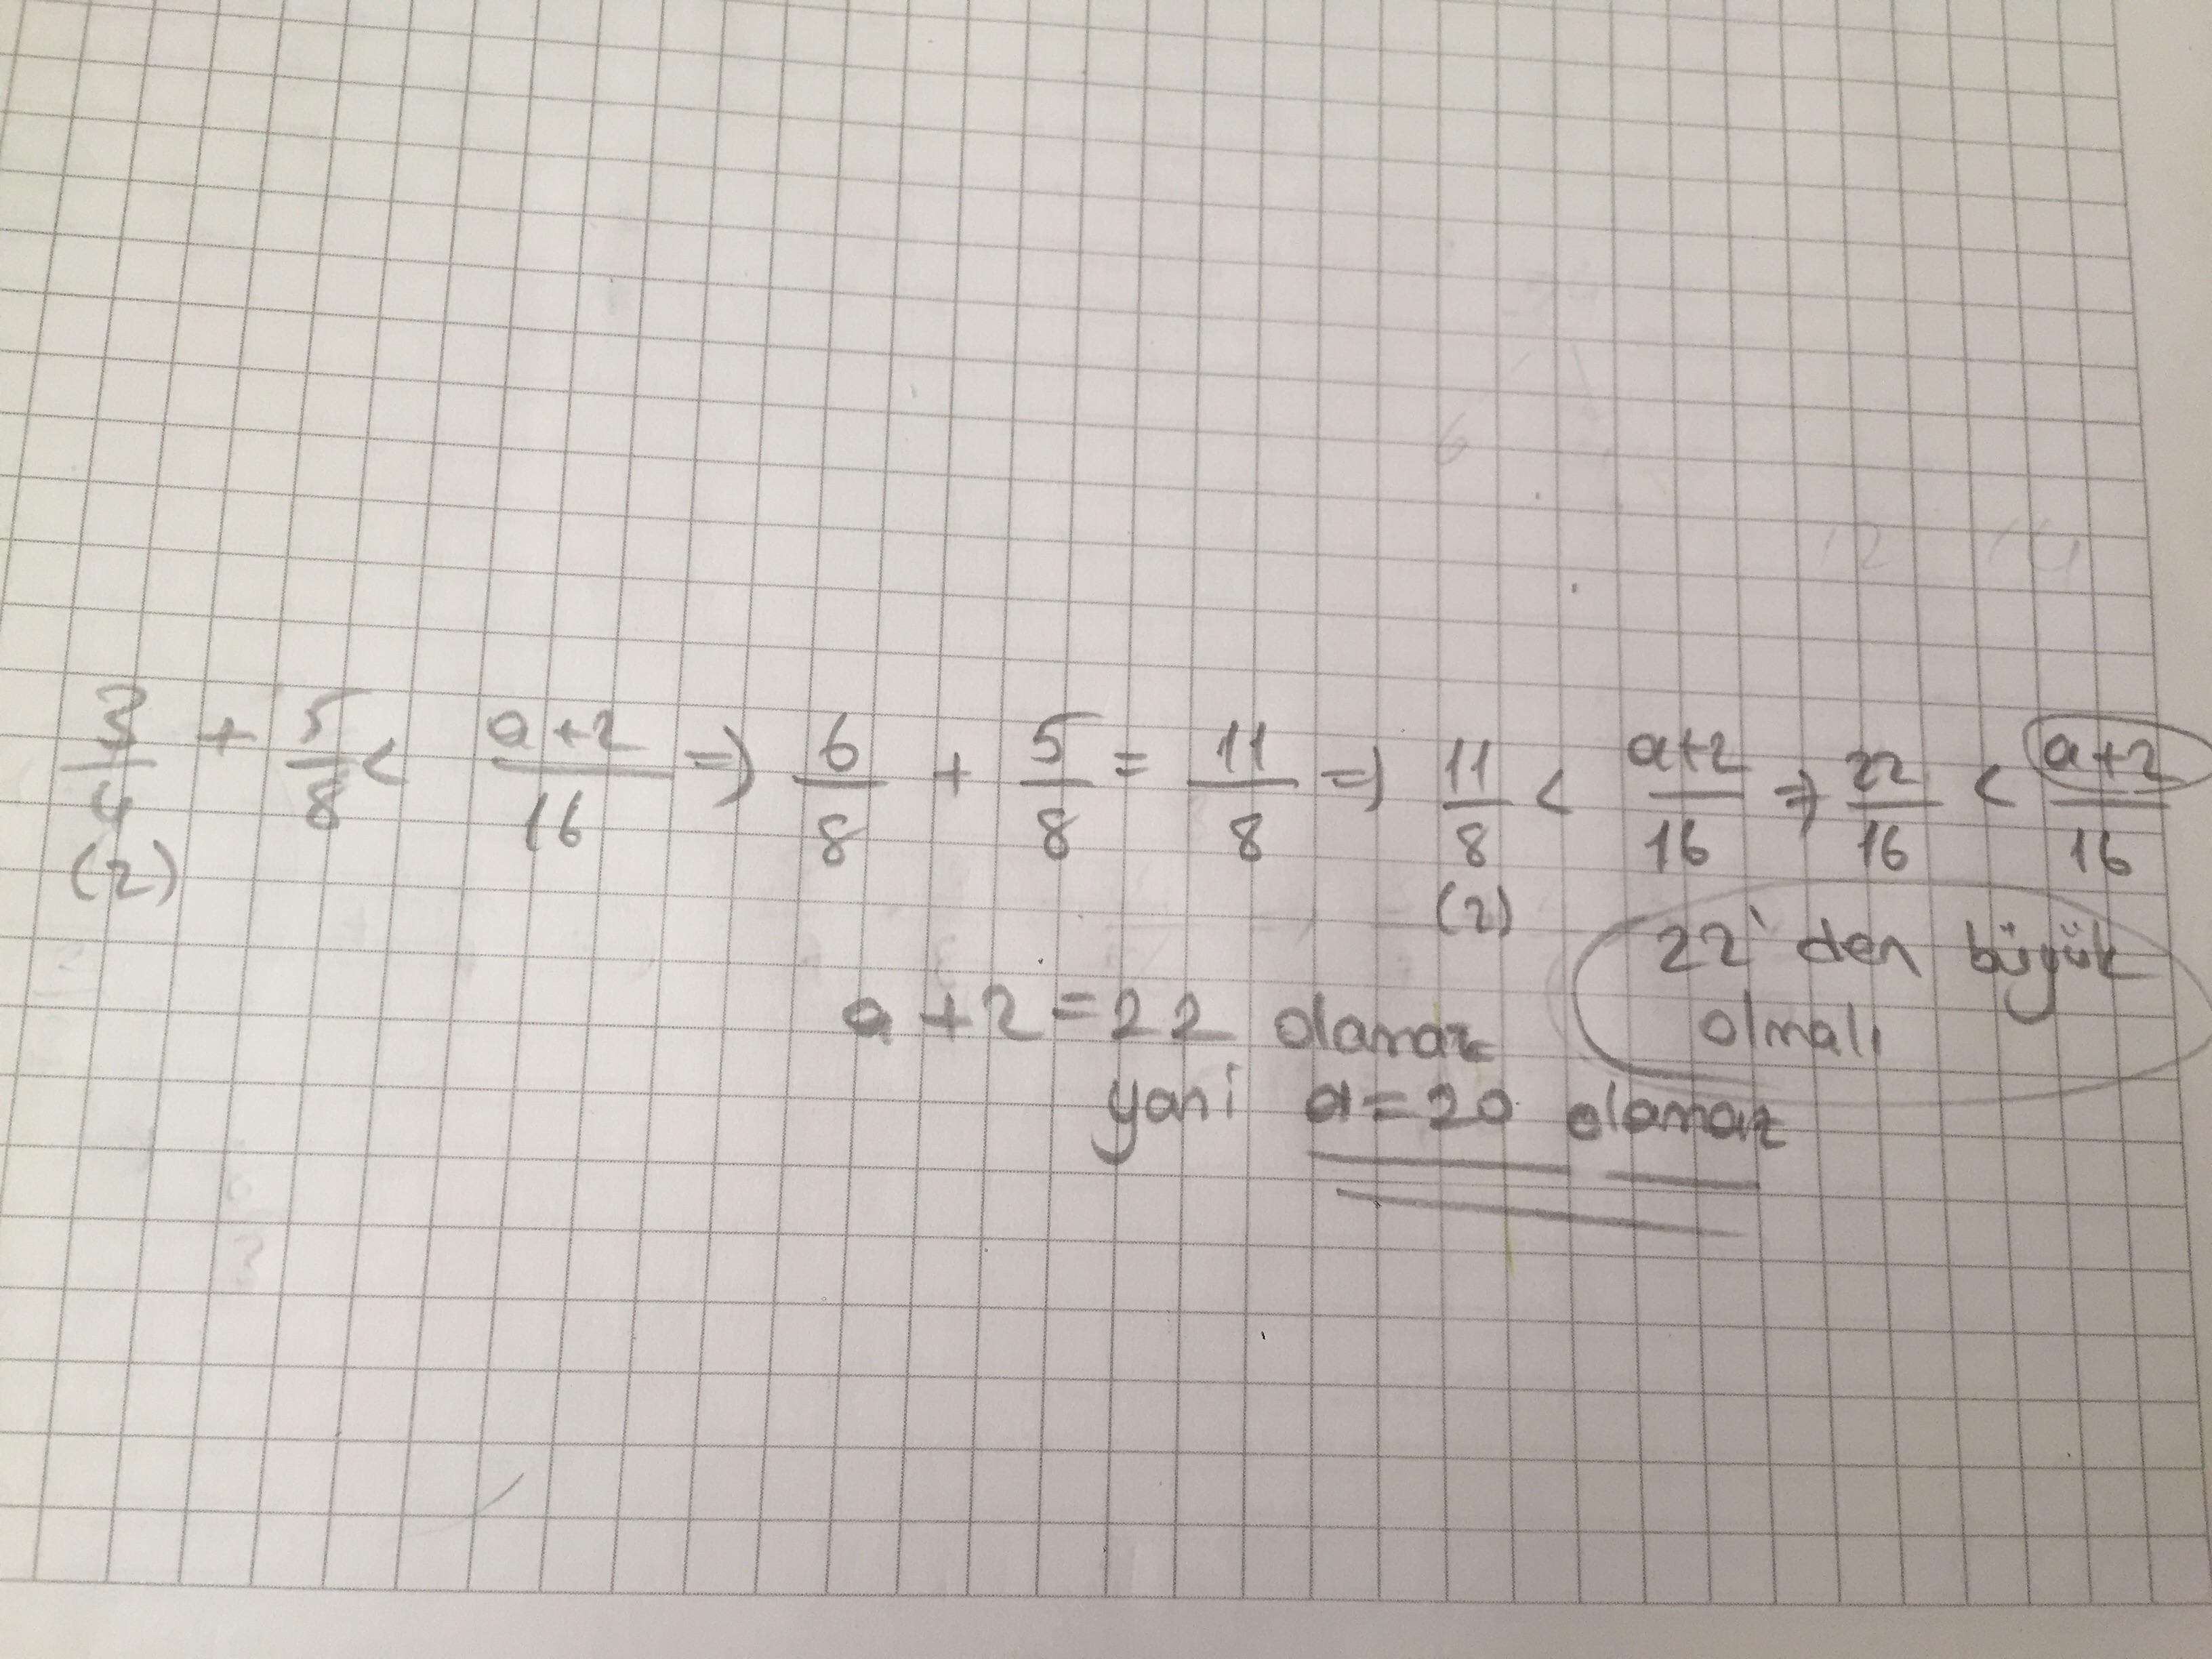 3/4 + 5/8 < a+2/16 => 6/8 + 5/8 = 11/8 => 11/8 < a+2/16 => 22/16 < a+2/16
(2) (2)
22'den büyük
olmalı
a+2=22 olamaz
yani a=20 olamaz